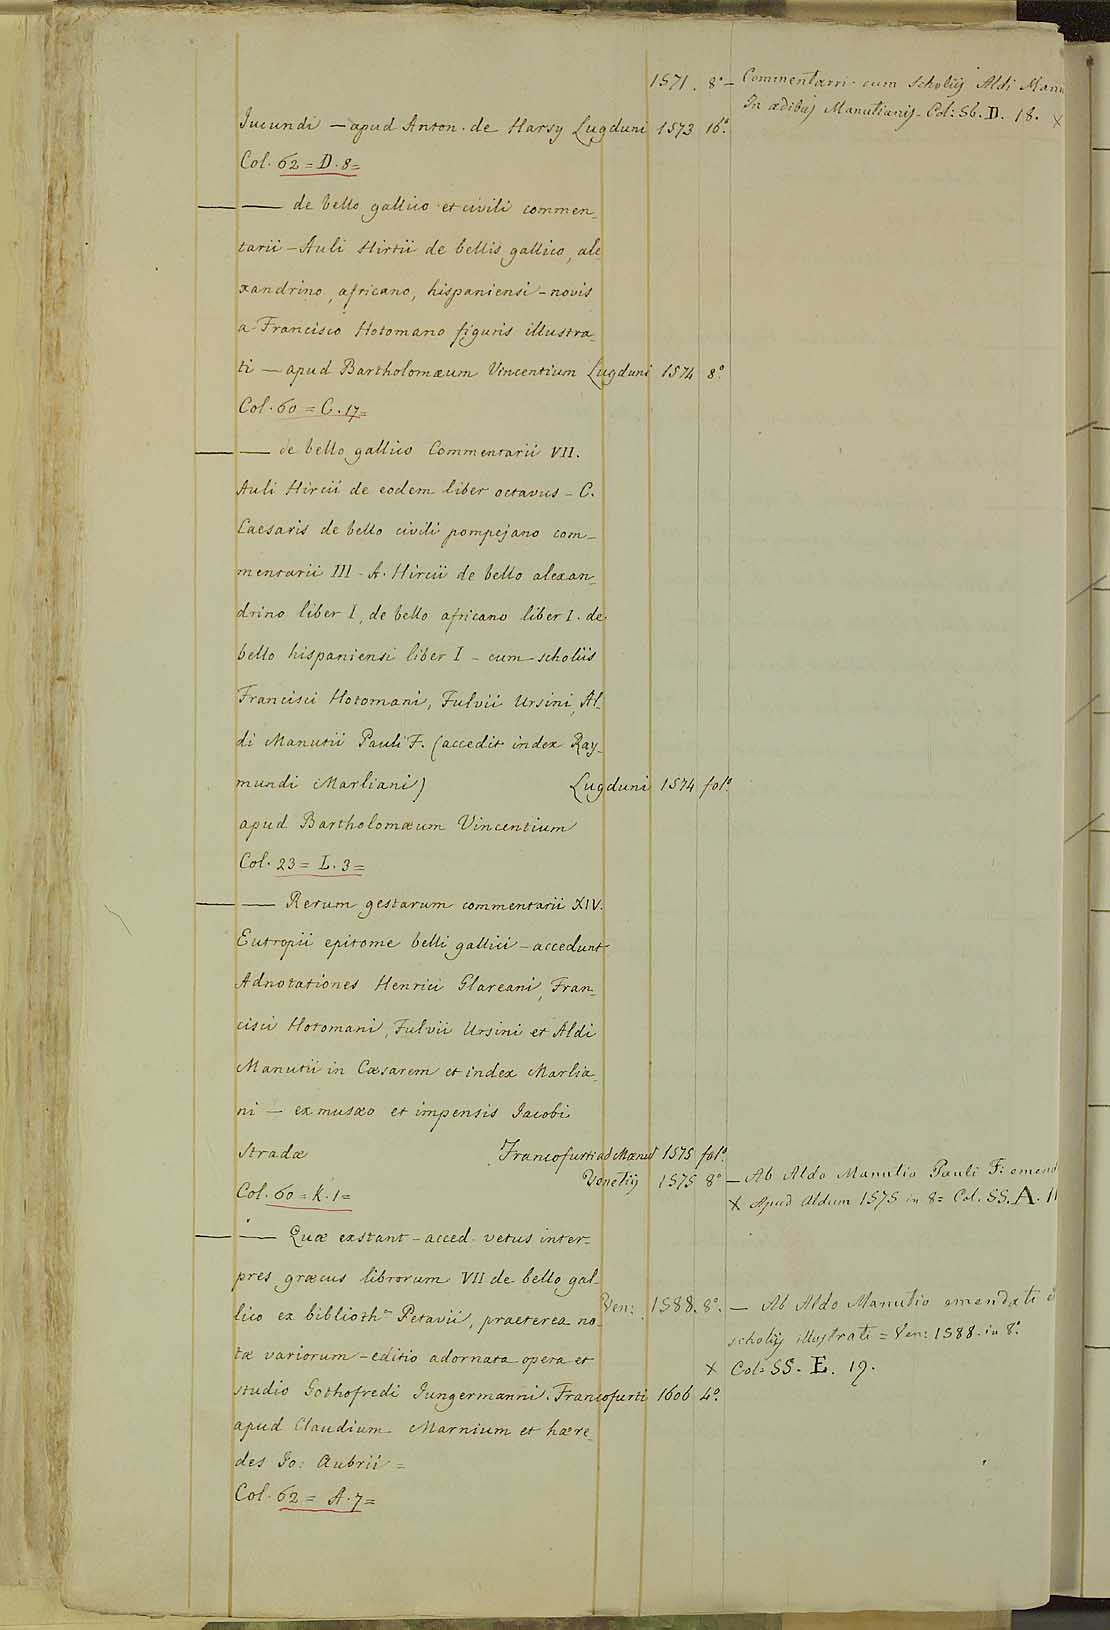 1571. 8º – Commentarii cum scholiis Aldi Manu
In ædibus Manutianis. Col: 56. D. 18. ×
Jucundi — apud Anton. de Harsy Lugduni 1573 16º
Col. 62 = D. 8 =
— — de bello gallico et civili commen-
tarii – Auli Hirtii de bellis gallico, ale-
xandrino, africano, hispaniensi – novis
a Francisco Hotomano figuris illustra-
ti — apud Bartholomæum Vincentium Lugduni 1574 8º
Col. 60 = C. 17 =
— — de bello gallico Commentarii VII.
Auli Hircii de eodem liber octavus – C.
Caesaris de bello civili pompejano com-
mentarii III – A. Hircii de bello alexan-
drino liber I, de bello africano liber I. de
bello hispaniensi liber I – cum scholiis
Francisci Hotomani, Fulvii Ursini, Al-
di Manutii Pauli F. (accedit index Ray-
mundi Marliani) Lugduni 1574 folº
apud Bartholomæum Vincentium
Col. 23 = L. 3 =
— — Rerum gestarum commentarii XIV.
Eutropii epitome belli gallici – accedunt
Adnotationes Henrici Glareani, Fran-
cisci Hotomani, Fulvii Ursini et Aldi
Manutii in Cæsarem et index Marlia-
ni — ex musæo et impensis Jacobi
Stradæ Francofurti ad Mænum 1575 folº
Venetiis 1575 8º – Ab Aldo Manutio Pauli F: emend
Col. 60 = K. 1 =
× Apud Aldum 1575 in 8= Col. SS. A. 11
— — Quæ exstant – acced. vetus inter-
pres græcus librorum VII de bello gal-
lico ex biblioth. Petavii, praeterea no-
Ven: 1588. 8º. — Ab Aldo Manutio emendati
scholiis illustrati = Ven: 1588. in 8º.
tæ variorum – editio adornata opera et
× Col: SS. E. 19.
studio Gothofredi Jungermanni. Francofurti 1606 4º.
apud Claudium Marnium et hære-
des Jo: Aubrii =
Col. 62 = A. 7 =